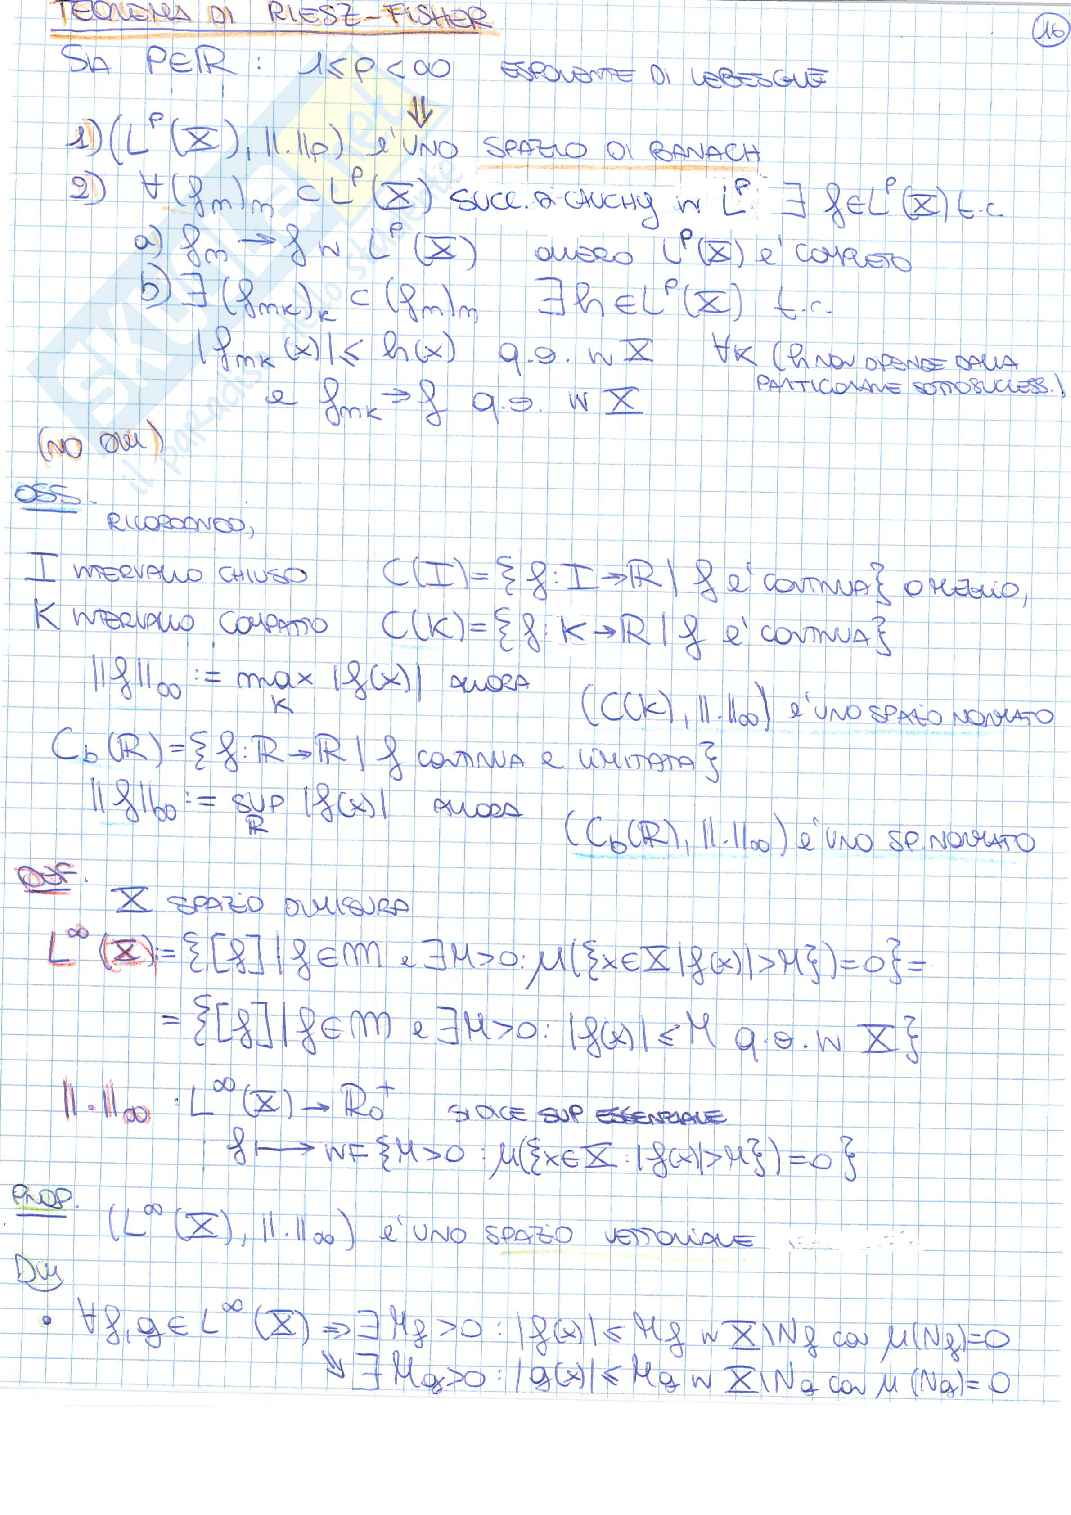 TEOREMA DI RIESZ-FISHER
16
SIA P∈ℝ : 1≤p<∞ ESPONENTE DI LEBESGUE
⇓
1) (Lᵖ(X), ||.||p) è UNO SPAZIO DI BANACH
2) ∀(fn)n ⊂ Lᵖ(X) SUCC. DI CAUCHY IN Lᵖ ∃ f∈Lᵖ(X) t.c.
a) fn → f IN Lᵖ(X) OVVERO Lᵖ(X) è COMPLETO
b) ∃(fnk)k ⊂ (fn)n ∃h∈Lᵖ(X) t.c.
|fnk(x)| ≤ h(x) q.o. IN X ∀K (h NON DIPENDE DALLA
PARTICOLARE SOTTOSUCCESS.)
e fnk → f q.o. IN X
(NO DIM)
OSS.
RICORDANDO,
I INTERVALLO CHIUSO C(I)={f: I→ℝ | f è CONTINUA} O MEGLIO,
K INTERVALLO COMPATTO C(K)={f: K→ℝ | f è CONTINUA}
||f||∞ := max |f(x)| ALLORA
K
(C(K), ||.||∞) è UNO SPAZIO NORMATO
Cb(ℝ)={f: ℝ→ℝ | f CONTINUA e LIMITATA}
||f||∞ := SUP |f(x)| ALLORA
ℝ
(Cb(ℝ), ||.||∞) è UNO SP. NORMATO
DEF.
X SPAZIO DI MISURA
L^∞(X):={[f] | f∈m e ∃M>0: μ({x∈X | f(x)|>M})=0}=
= {[f] | f∈m e ∃M>0: |f(x)|≤M q.o. IN X}
||.||∞ : L^∞(X) → ℝ₀⁺ SI DICE SUP ESSENZIALE
f ↦ INF{M>0 : μ({x∈X : |f(x)|>M})=0}
PROP.
(L^∞(X), ||.||∞) è UNO SPAZIO VETTORIALE
DIM
• ∀f,g∈L^∞(X) ⇒ ∃Mf>0 : |f(x)|≤Mf IN X\Nf con μ(Nf)=0
⇘ ∃Mg>0 : |g(x)|≤Mg IN X\Ng con μ(Ng)=0